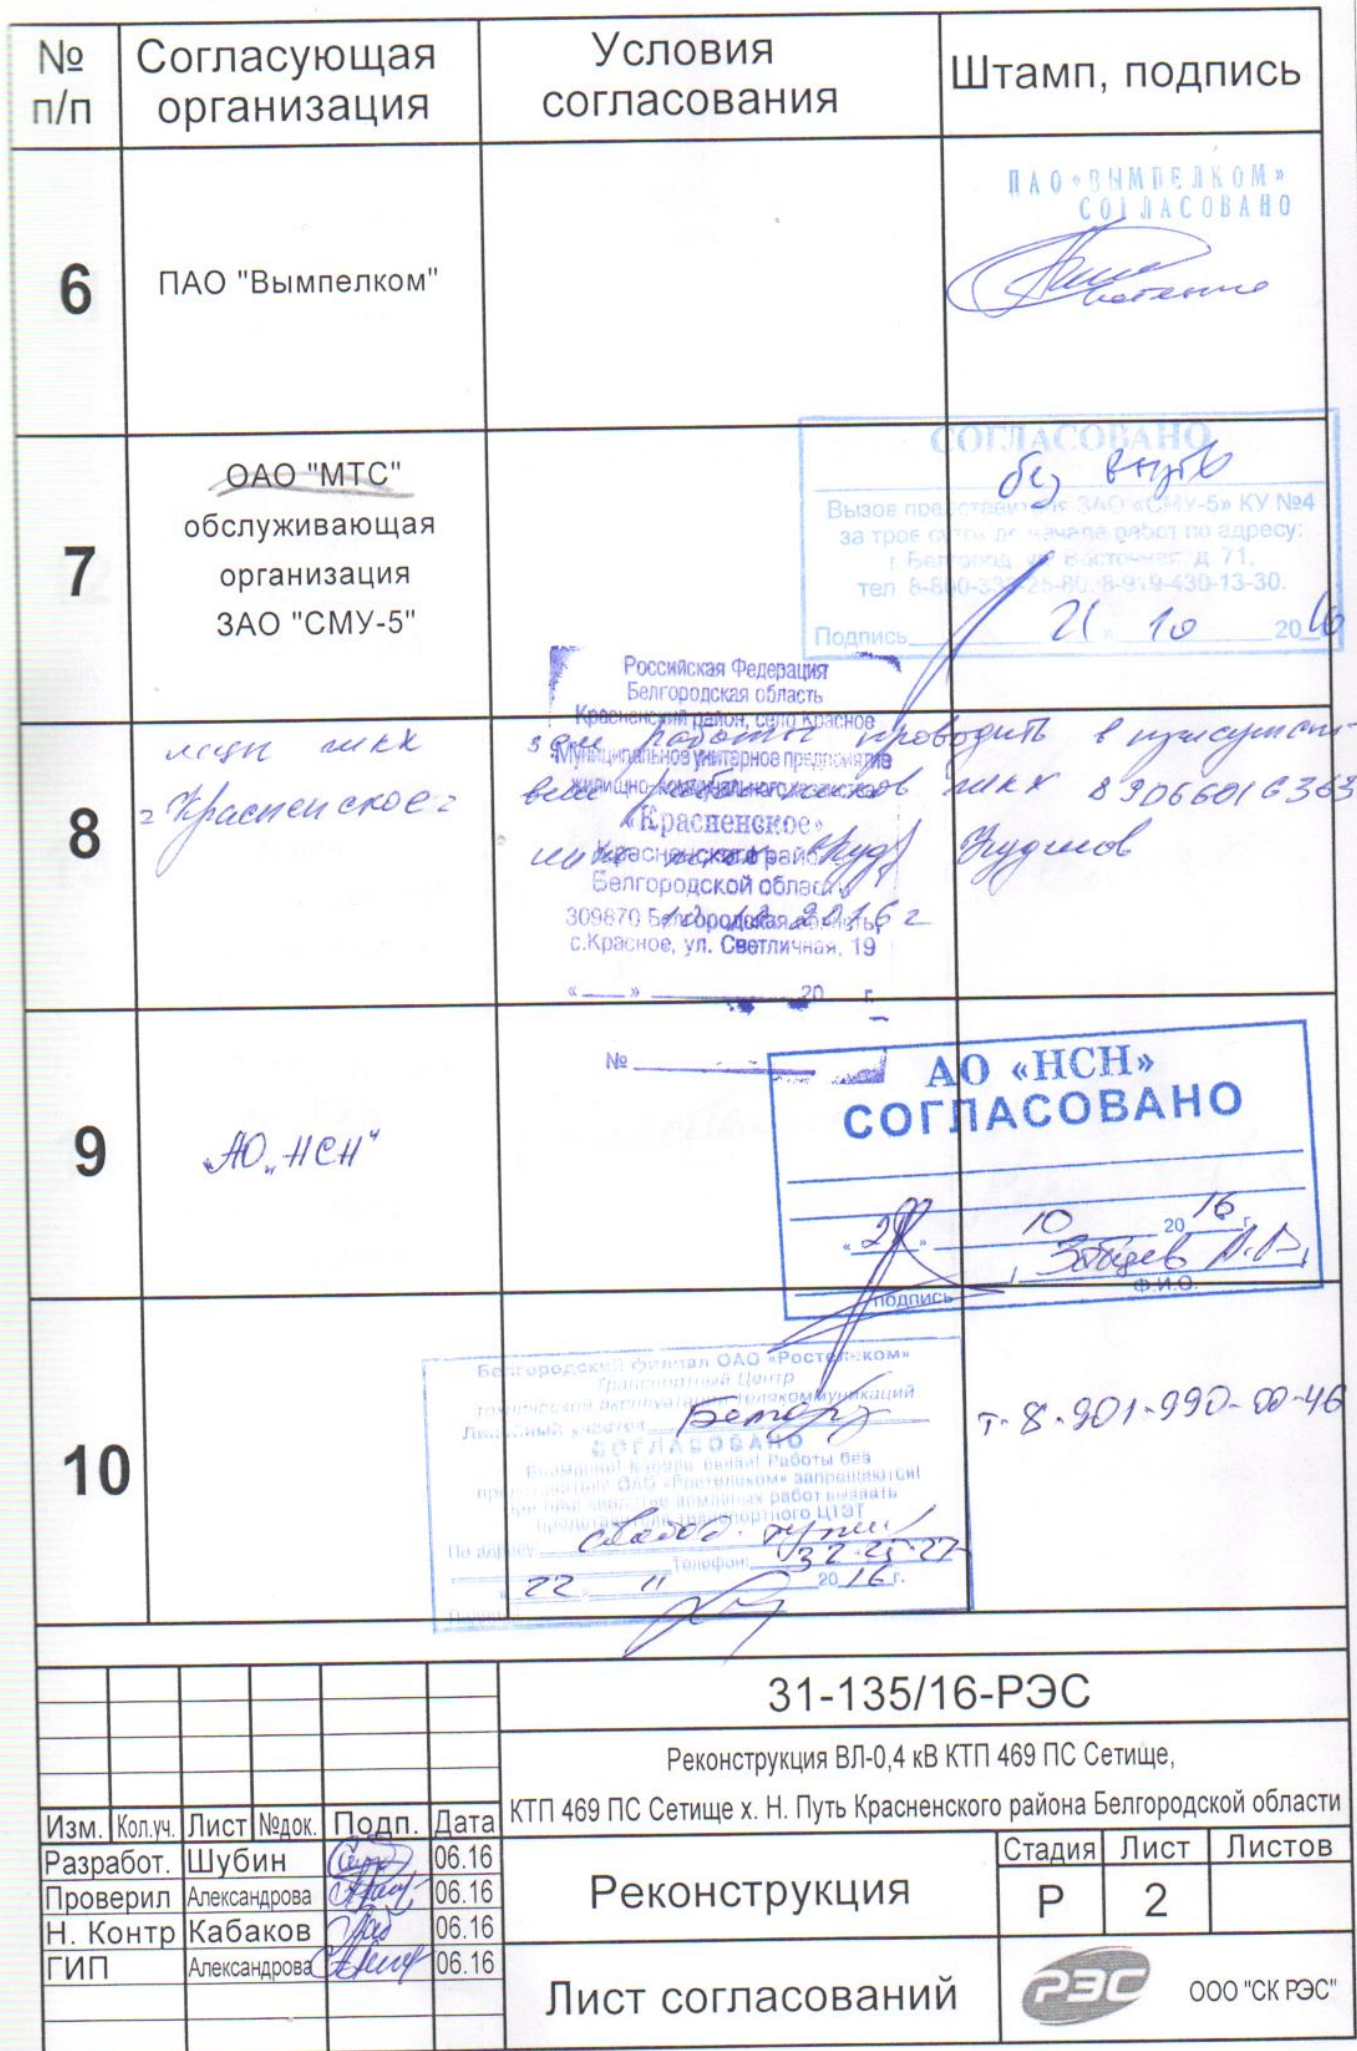 № п/п
Согласующая организация
Условия согласования
Штамп, подпись
6
ПАО "Вымпелком"
ПАО «ВЫМПЕЛКОМ»
СОГЛАСОВАНО
7
ОАО "МТС"
обслуживающая
организация
ЗАО "СМУ-5"
СОГЛАСОВАНО
без
Вызов представителя ЗАО «СМУ-5» КУ №4
за трое суток до начала работ по адресу:
г. Белгород, ул. Восточная, д. 71,
тел. 8-800-333-25-80, 8-919-430-13-30.
Подпись 21 » 10 2016
8
ЖКХ
"Красненское"
Российская Федерация
Белгородская область
Красненский район, село Красное
Муниципальное унитарное предприятие
жилищно-коммунального хозяйства
«Красненское»
Красненского района
Белгородской области
309870 Белгородская область,
с.Красное, ул. Светличная, 19
« » 20 г.
№
зем работы проводить в присутст-
вии ЖКХ 89066016363
2016 г
9
"АО "НСН"
АО «НСН»
СОГЛАСОВАНО
10 2016 г.
подпись Ф.И.О.
10
Белгородский филиал ОАО «Ростелеком»
Транспортный Центр
технической эксплуатации телекоммуникаций
Линейный участок
СОГЛАСОВАНО
Внимание! Кабель связи! Работы без
представителя ОАО «Ростелеком» запрещаются!
При производстве земляных работ вызвать
представителя транспортного ЦТЭТ
По адресу:
Телефон: 32-25-27
« 22 » 11 2016 г.
т-8-901-990-00-46
31-135/16-РЭС
Реконструкция ВЛ-0,4 кВ КТП 469 ПС Сетище,
КТП 469 ПС Сетище х. Н. Путь Красненского района Белгородской области
Изм. Кол.уч. Лист №док. Подп. Дата
Разработ. Шубин 06.16
Проверил Александрова 06.16
Н. Контр Кабаков 06.16
ГИП Александрова 06.16
Реконструкция
Стадия Лист Листов
Р 2
Лист согласований
РЭС
ООО "СК РЭС"